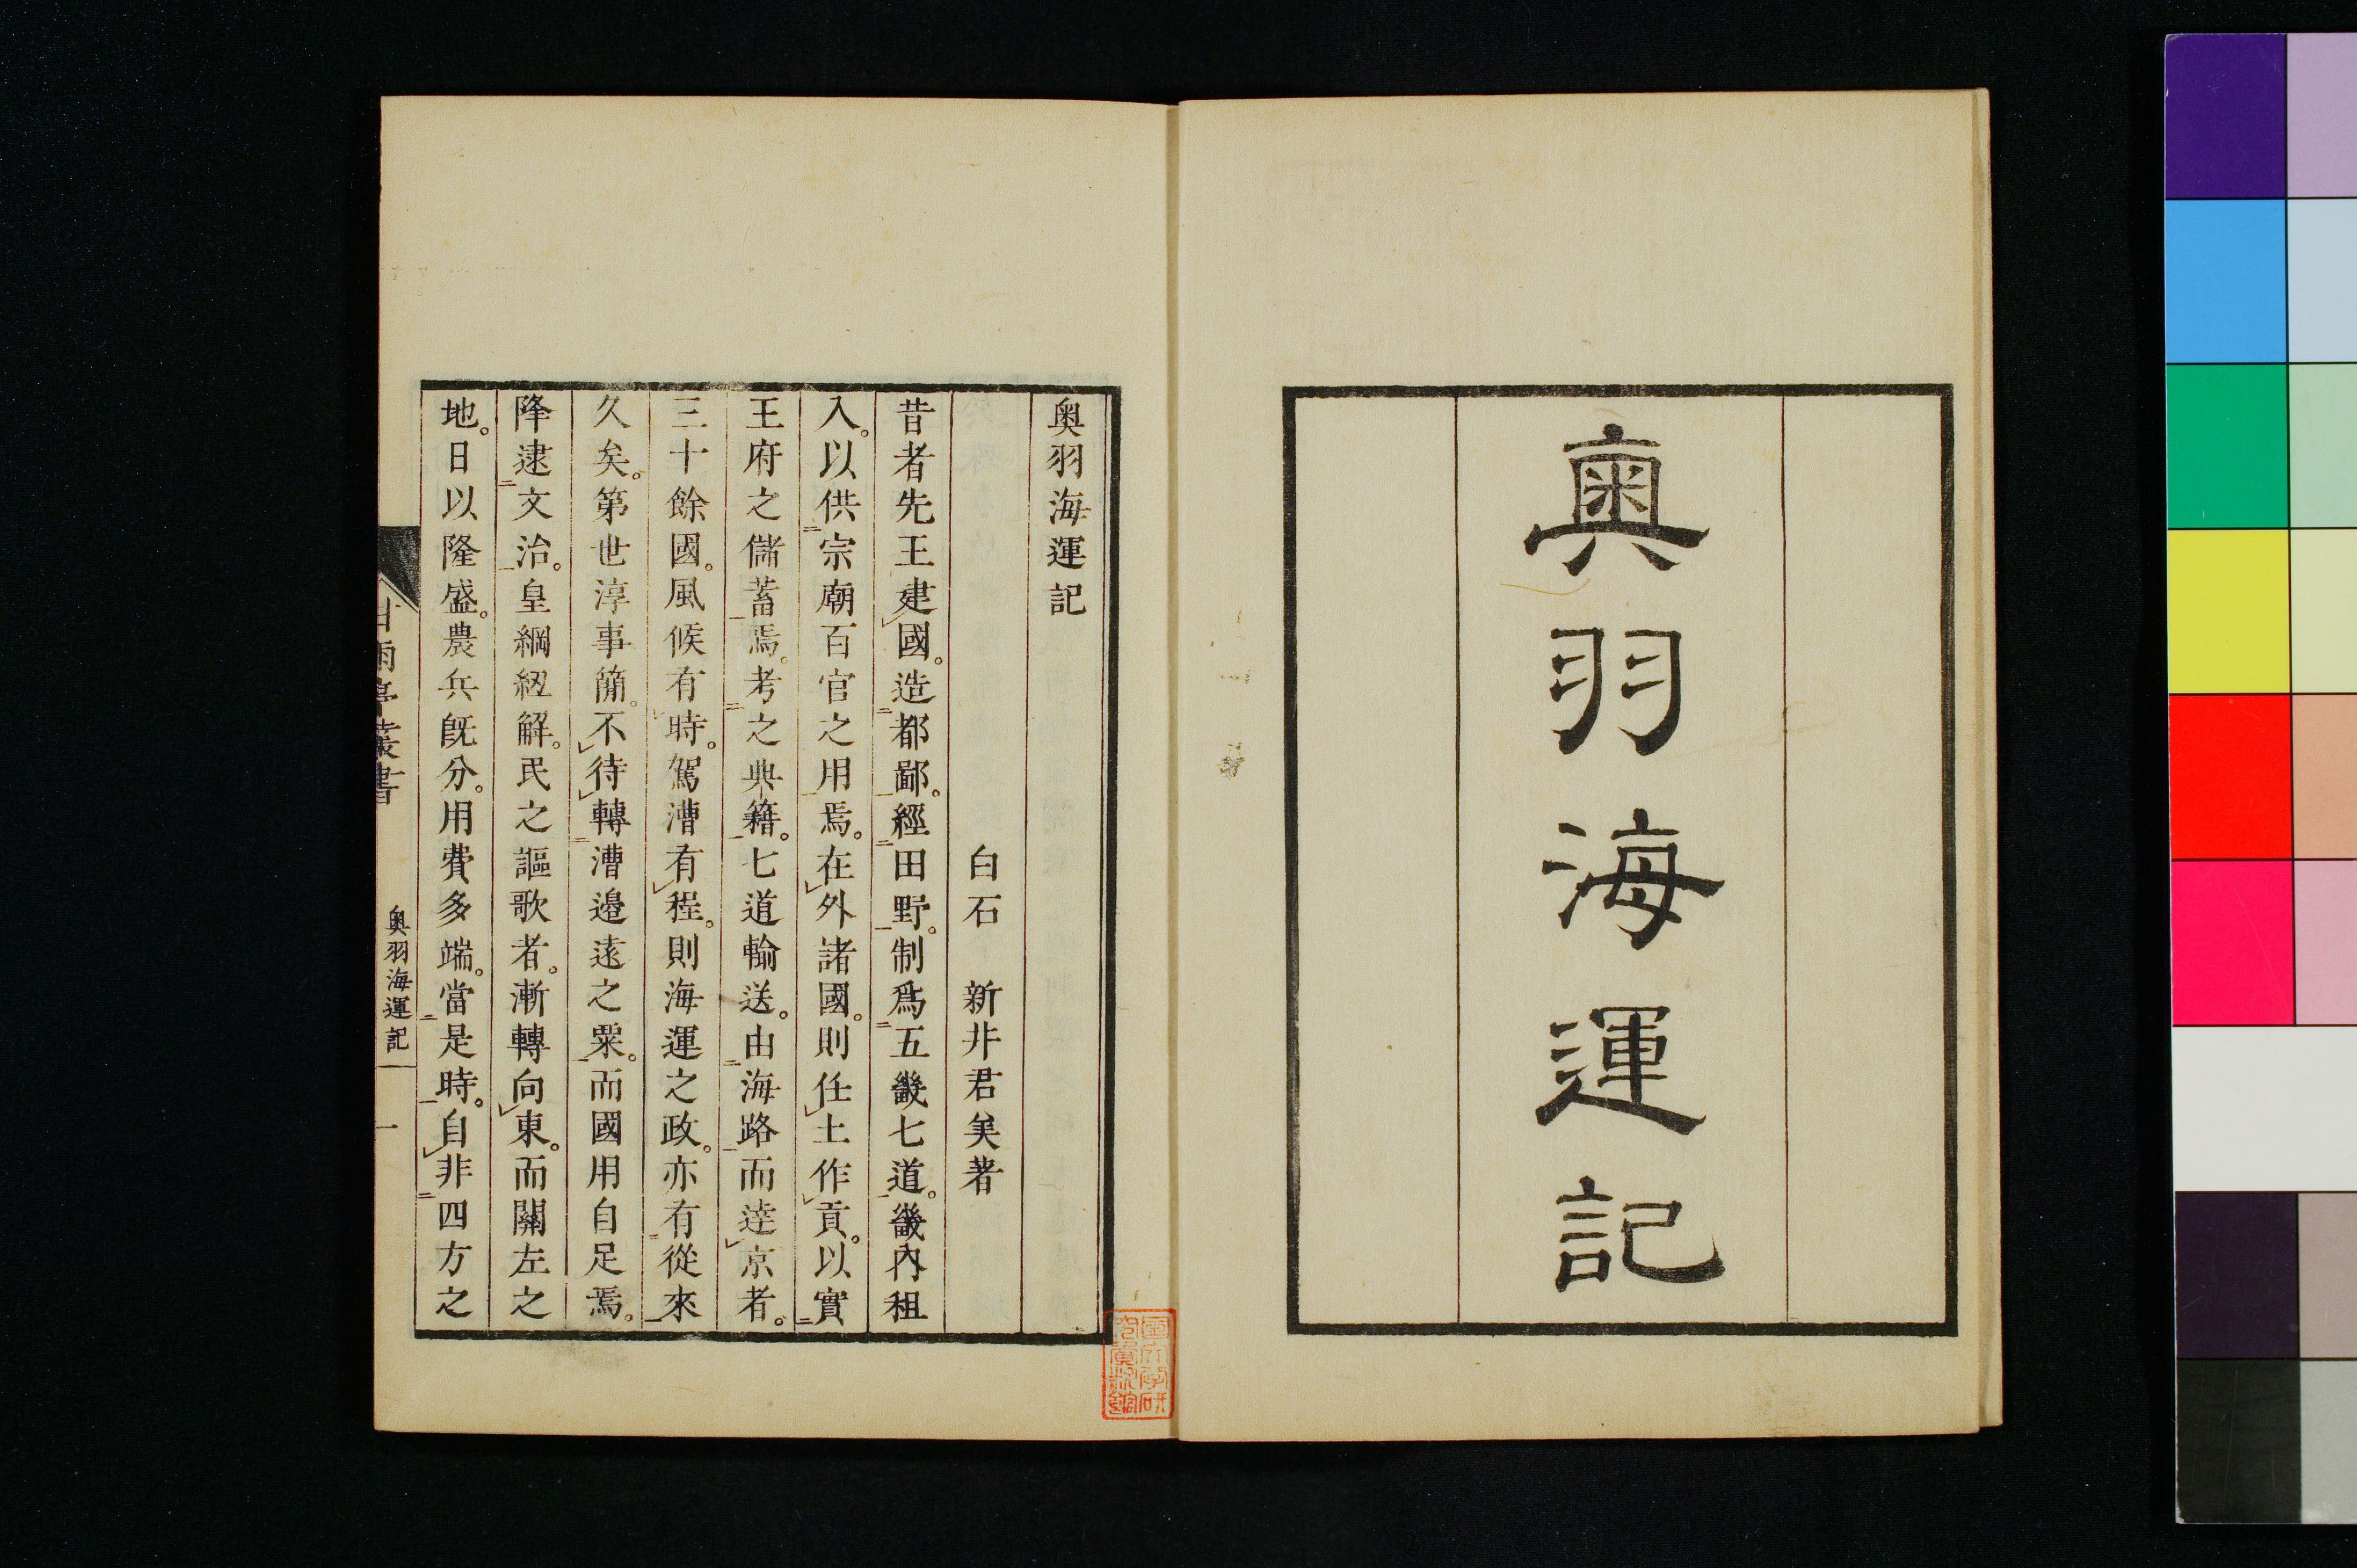 奧羽海運記
奧羽海運記
白石　新井君美著
昔者先王建國。造都鄙。經田野。制爲五畿七道。畿內租
入。以供宗廟百官之用焉。在外諸國。則任土作貢。以實
王府之儲蓄焉。考之典籍。七道輸送。由海路而達京者。
三十餘國。風候有時。駕漕有程。則海運之政。亦有從來
久矣。第世淳事簡。不待轉漕邊遠之粟。而國用自足焉。
降逮文治。皇綱紐解。民之謳歌者。漸轉向東。而關左之
地。日以隆盛。農兵旣分。用費多端。當是時。自非四方之
甘雨亭叢書
奧羽海運記
一